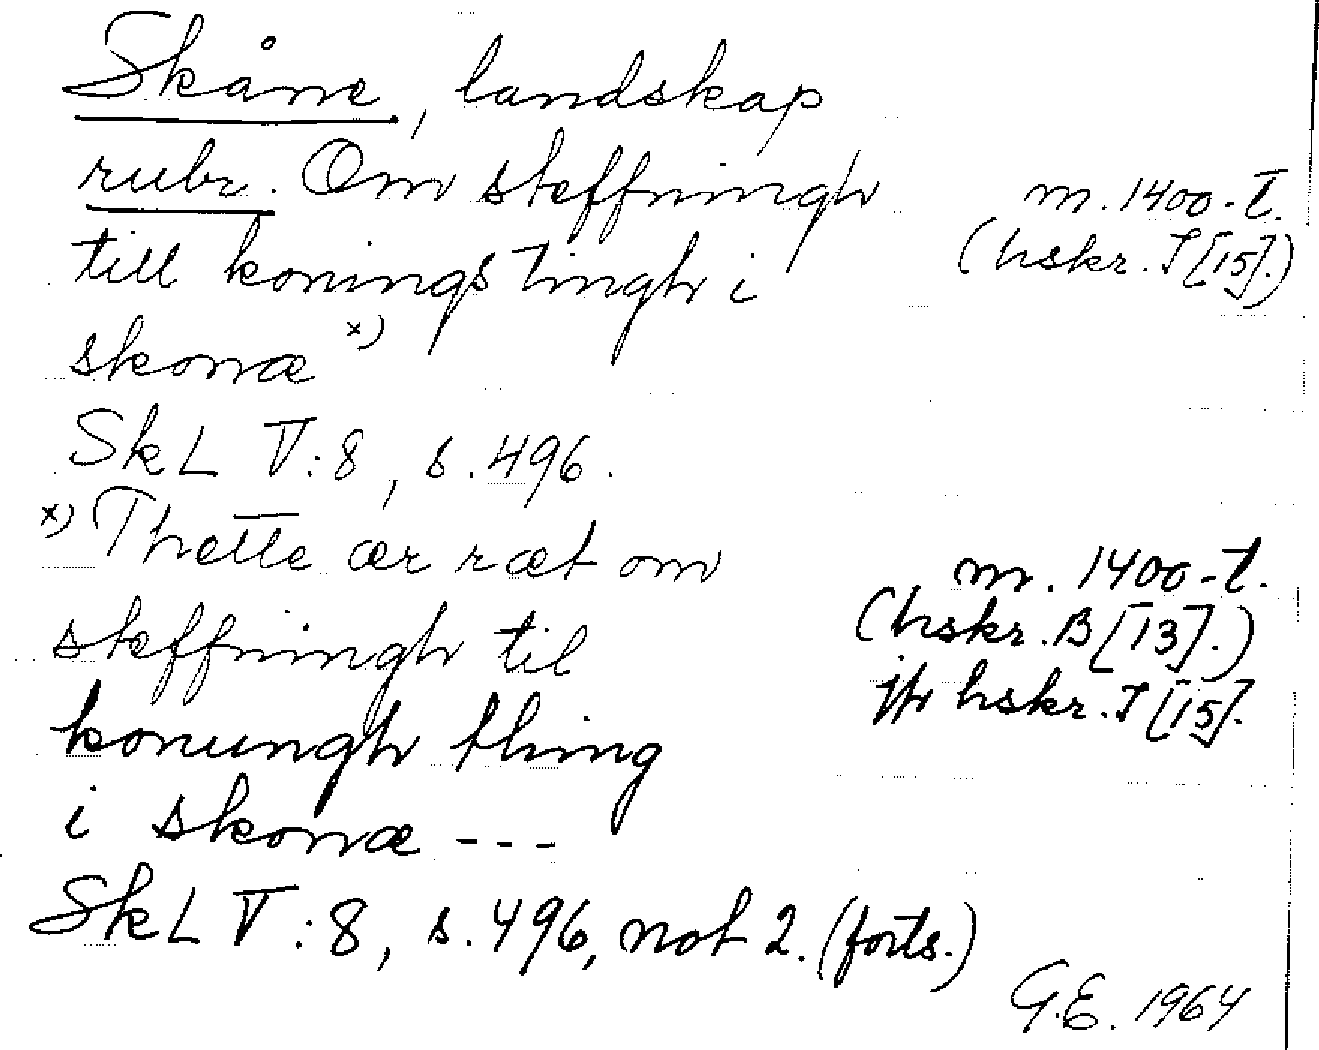 Skåne, landskap
rubr. Om steffningh
m. 1400-t.
till konings tingh i
(hskr. I [15].)
skonæ x)
SkL V:8, s. 496.
x) Thette ær ræt om
steffningh til
m. 1400-t.
(hskr. B [13].)
konungh thing
jfr hskr. I [15].
i skonæ ---
SkL V:8, s. 496, not 2. (forts.)
G.E. 1964